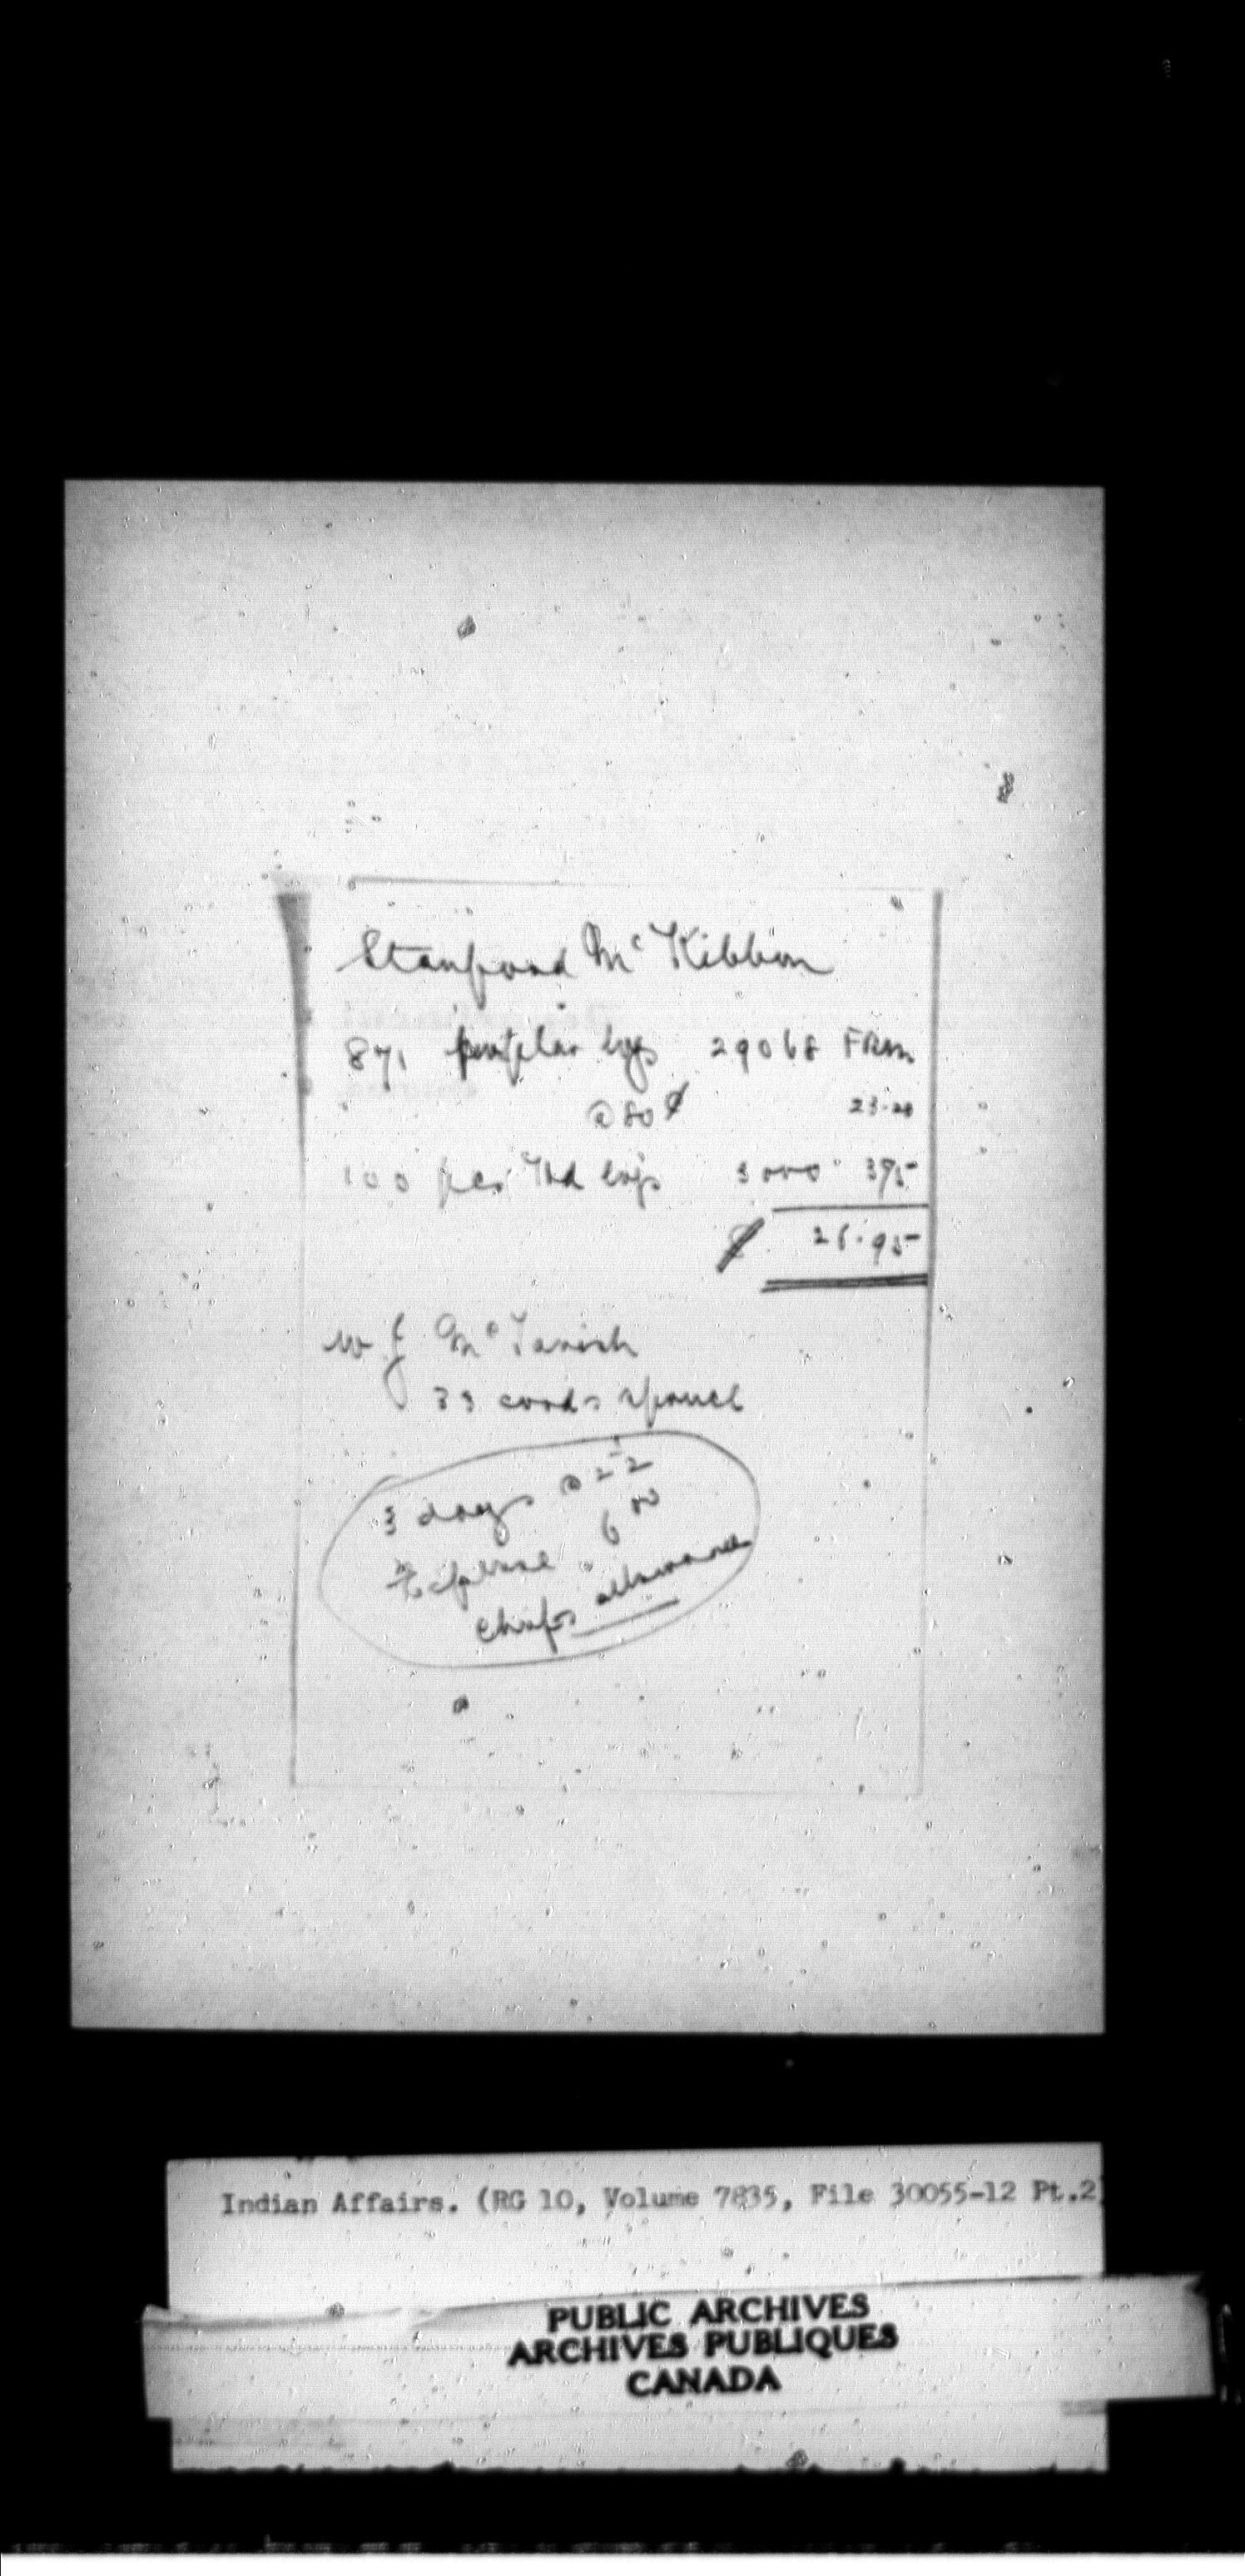 Stanford Mc Kibbon
871 poplar logs 29068 FBM
@ 80¢ 23.20
100 per Thd logs 5000 375
$ 26.95
W J McTavish
33 cords spruce
3 days @ 2
6 00
Chiefs allowance
Indian Affairs. (RG 10, Volume 7835, File 30055-12 Pt.2)
PUBLIC ARCHIVES
ARCHIVES PUBLIQUES
CANADA